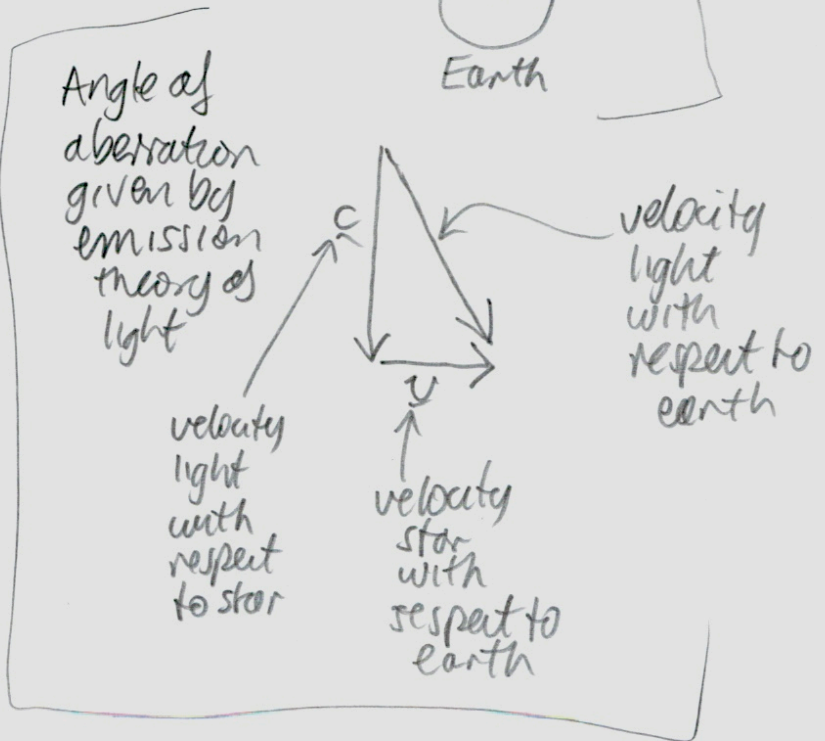 Earth
Angle of
aberration
given by
emission
theory of
light
c
velocity
light
with
respect to
earth
v
velocity
light
with
respect
to star
velocity
star
with
respect to
earth